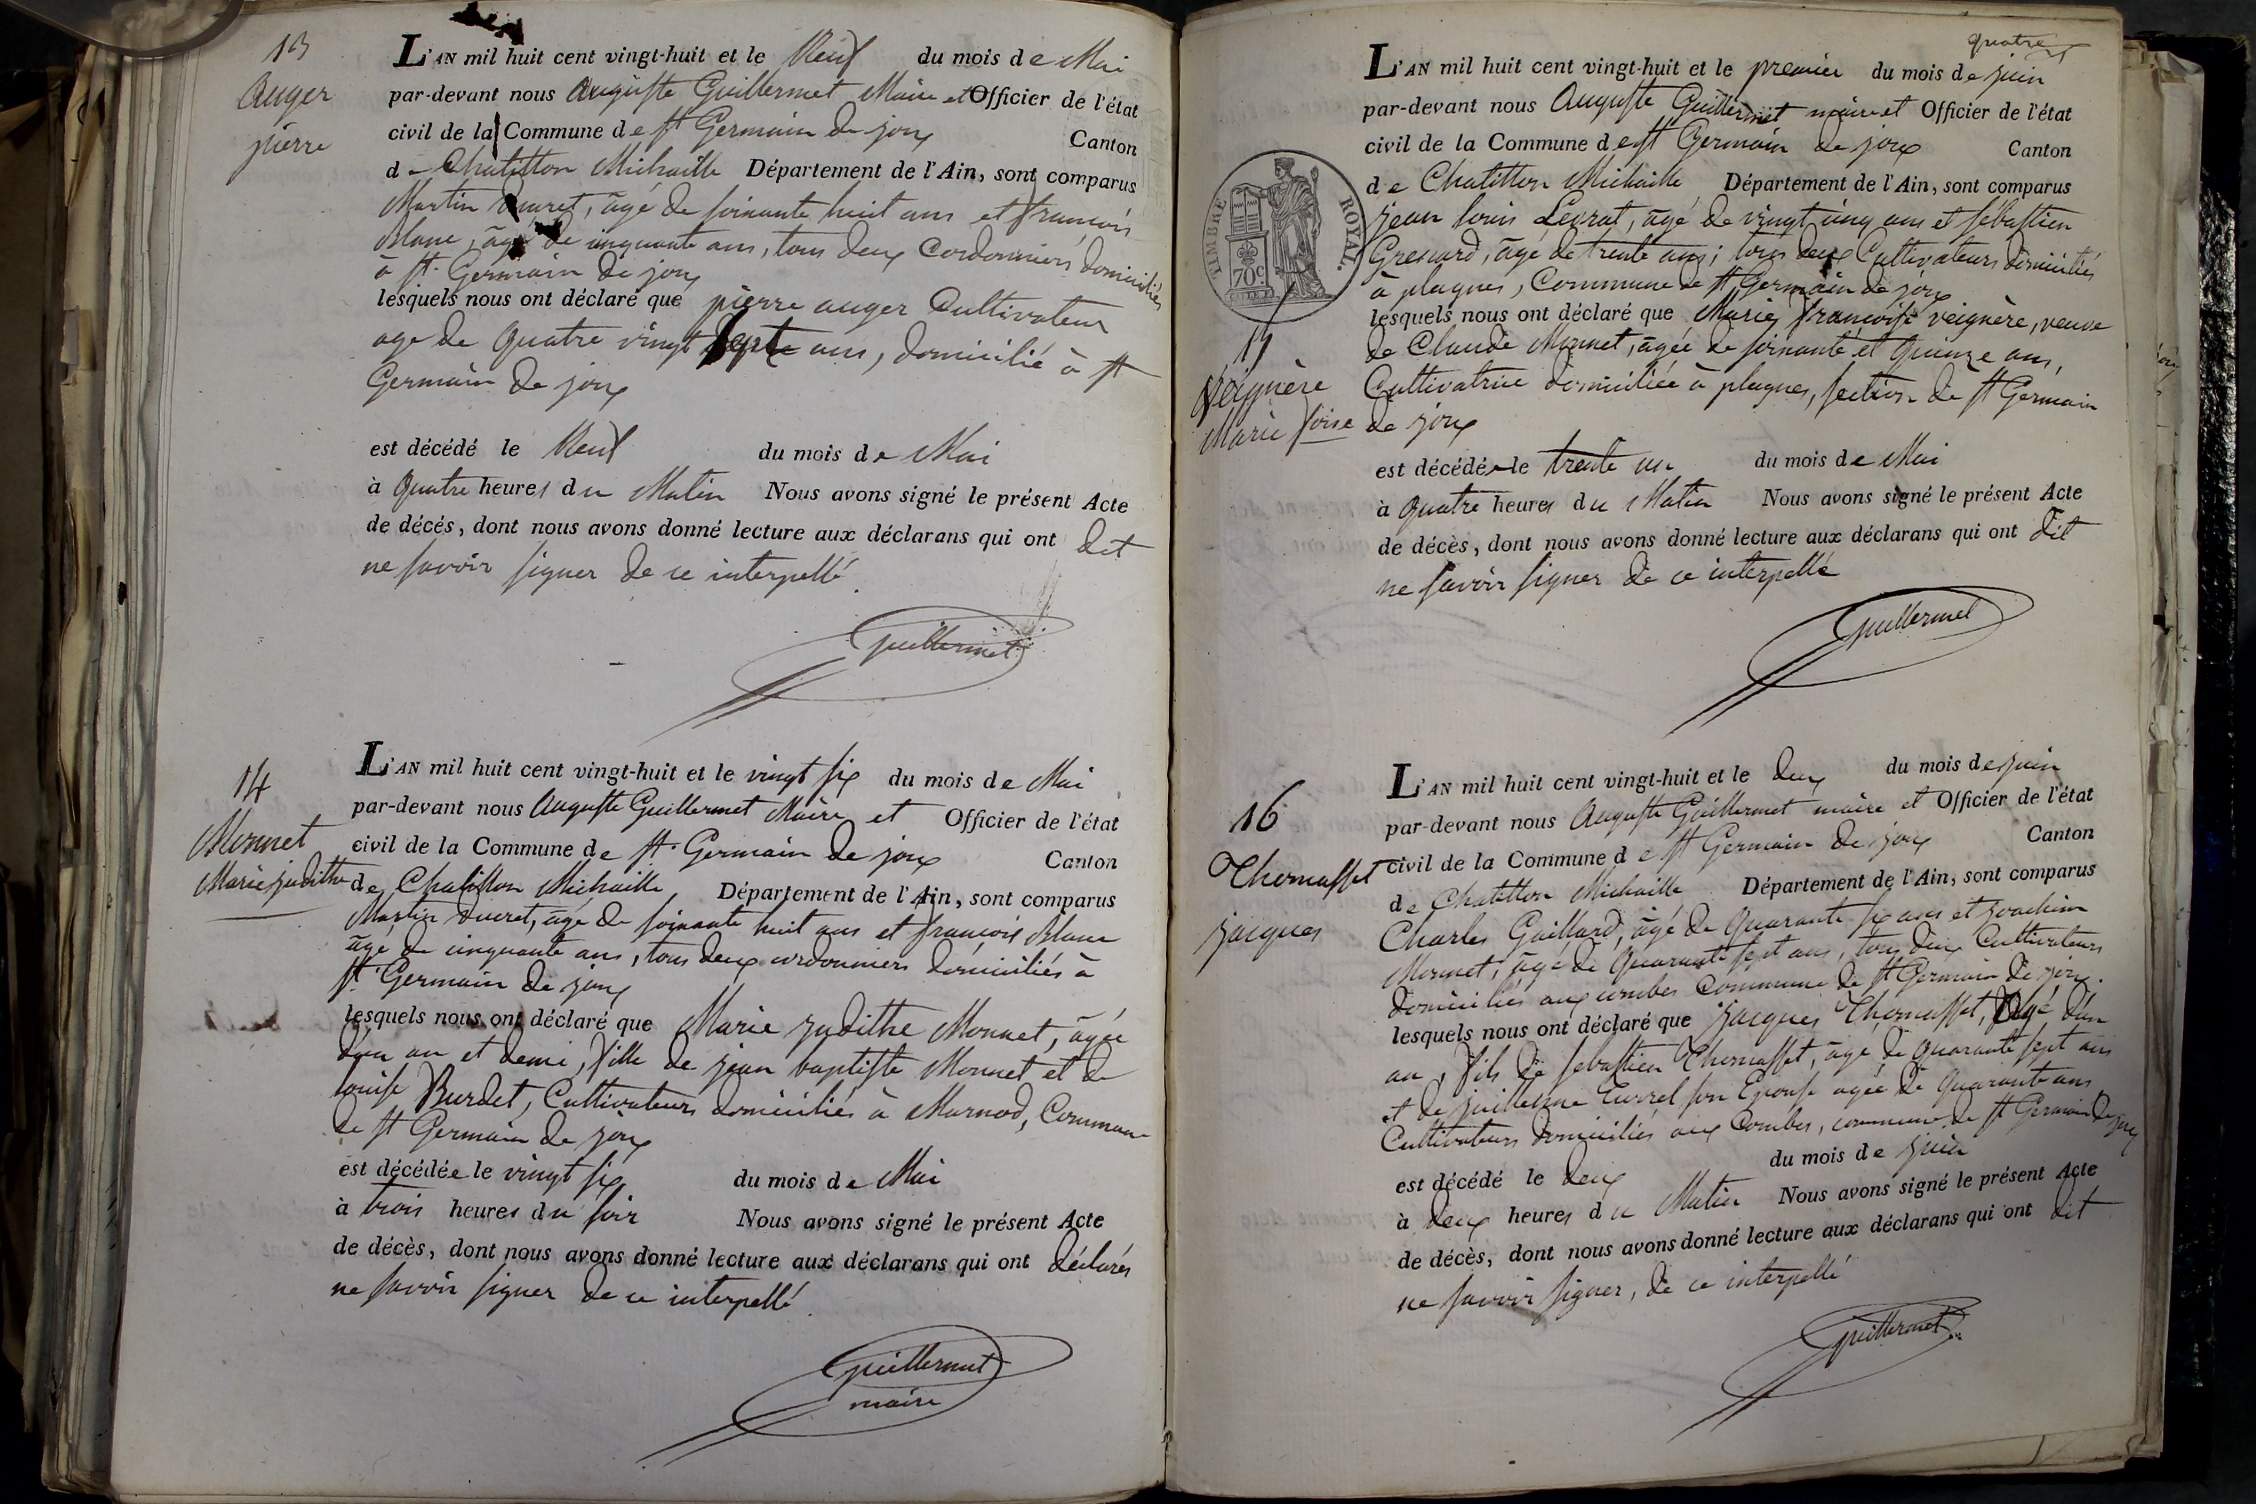 13
Auger
pierre
L'AN mil huit cent vingt-huit et le Neuf du mois de Mai
par-devant nous Auguste Guillermet Maire et Officier de l'état
civil de la Commune de st Germain de joux Canton
de Chatillon Michaille Département de l'Ain, sont comparus
Martin Ducret, âgé de soixante huit ans et françois
Blanc, âgé de cinquante ans, tous deux Cordonniers domiciliés
à st. Germain de joux
lesquels nous ont déclaré que pierre auger Cultivateur
age de quatre vingt septe ans, domicilié à st
Germain de joux
est décédé le Neuf du mois de Mai
à quatre heures du Matin Nous avons signé le présent Acte
de décés, dont nous avons donné lecture aux déclarans qui ont dit
ne savoir signer de ce interpellé.
Guillermet
14
Monnet
Marie judithe
L'AN mil huit cent vingt-huit et le vingt six du mois de Mai
par-devant nous Auguste Guillermet Maire et Officier de l'état
civil de la Commune de st. Germain de joux Canton
de Chatillon Michaille Département de l'Ain, sont comparus
Martin Ducret, âgé de soixante huit ans et françois Blanc
âgé de cinquante ans, tous deux cordonniers domiciliés à
st. Germain de joux
lesquels nous ont déclaré que Marie judithe Monnet, âgée
d'un an et demi, fille de jean baptiste Monnet et de
louise Burdet, Cultivateurs domiciliés à Marnod, Commune
de st Germain de joux
est décédée le vingt six du mois de Mai
à trois heures du soir Nous avons signé le présent Acte
de décès, dont nous avons donné lecture aux déclarans qui ont déclarés
ne savoir signer de ce interpellé.
Guillermet
maire
quatre
TIMBRE ROYAL.
70c
Veignère
Marie foise
L'AN mil huit cent vingt-huit et le premier du mois de juin
par-devant nous Auguste Guillermet maire et Officier de l'état
civil de la Commune de st Germain de joux Canton
de Chatillon Michaille Département de l'Ain, sont comparus
jean louis Levrat, âgé de vingt cinq ans et sébastien
Grescard, âgé de trente ans; tous deux Cultivateurs domiciliés
à plagnes, Commune de st Germain de joux
lesquels nous ont déclaré que Marie françoise veignère, veuve
de Claude Monnet, âgée de soixante et quinze ans,
Cultivatrice domiciliée à plagnes, section de st Germain
de joux
est décédée le trente un du mois de Mai
à quatre heures du Matin Nous avons signé le présent Acte
de décès, dont nous avons donné lecture aux déclarans qui ont dit
ne savoir signer de ce interpellé
Guillermet
16
Thomasset
jacques
L'AN mil huit cent vingt-huit et le deux du mois de juin
par-devant nous Auguste Guillermet maire et Officier de l'état
civil de la Commune de st Germain de joux Canton
de Chatillon Michaille Département de l'Ain, sont comparus
Charles Gaillard, âgé de quarante six ans et joachim
Monnet, âgé de quarante sept ans, tous deux Cultivateurs
domiciliés aux combes Commune de st Germain de joux.
lesquels nous ont déclaré que jacques Thomasset, âgé d'un
an, fils de sebastien Thomasset, âgé de quarante sept ans
et de juillermine Turrel son Epouse agée de quarante ans
Cultivateurs domiciliés aux Combes, commune de st Germain de joux
est décédé le deux du mois de juin
à deux heures du Matin Nous avons signé le présent Acte
de décès, dont nous avons donné lecture aux déclarans qui ont dit
ne savoir signer, de ce interpellé
Guillermet